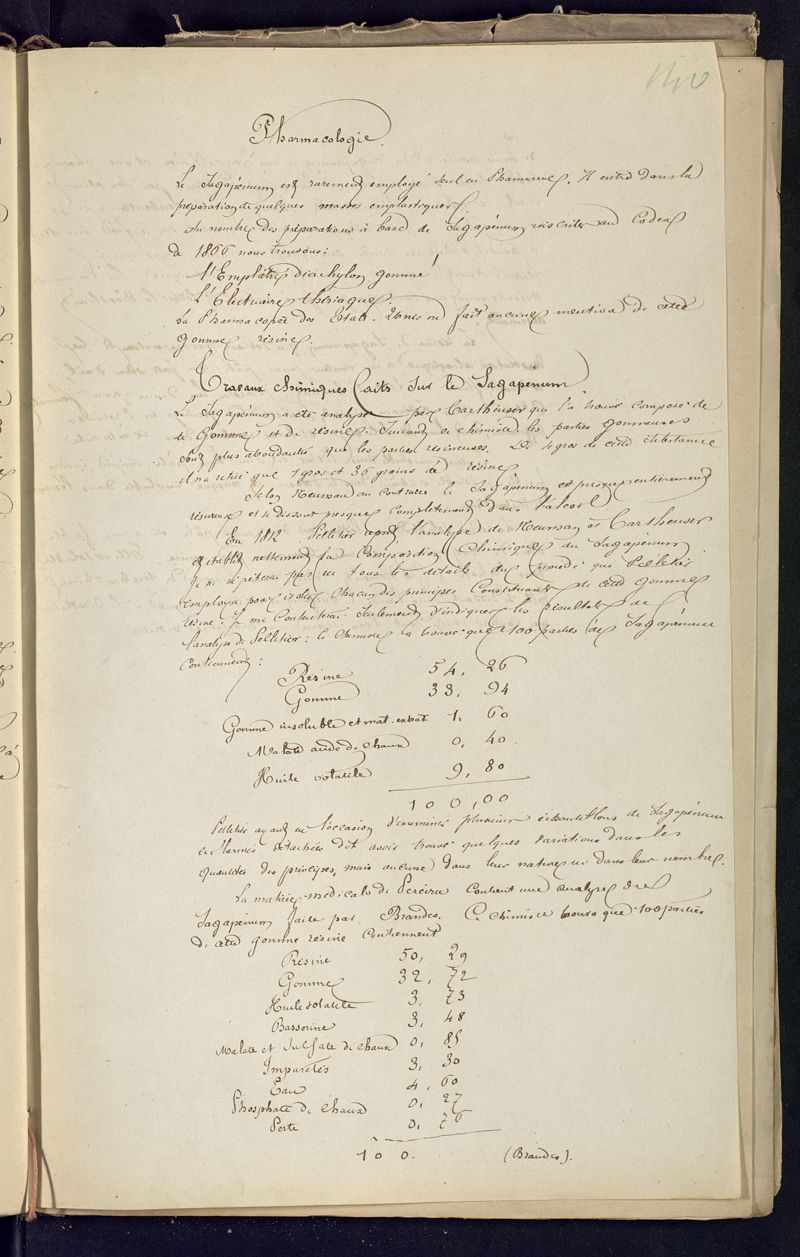 140
Pharmacologie.
Le Sagapénum est rarement employé seul en Pharmacie. Il entre dans la
préparation de quelques masses emplastiques.
Au nombre des préparations à base de Sagapénum inscrites au Codex
de 1866 nous trouvons :
l'Emplâtre diachylon gommé
L'Electuaire thériaque.
La Pharmacopée des Etats-Unis ne fait aucune mention de cette
gomme résine.
Travaux chimiques faits sur le Sagapénum
Le Sagapénum a été analysé par Cartheuser qui l'a trouvé composé de
de Gomme et de résine. Suivant ce chimiste les parties gommeuses
sont plus abondantes que les parties résineuses. De 4 gros de cette substance
il n'a retiré que 1 gros et 36 grains de résine.
Selon Neuman au contraire le Sagapénum est presque entièrement
résineux et se dissout presque complètement dans l'alcool.
En 1812 Pelletier reprit l'analyse de Neuman et Cartheuser
et établit nettement la Composition Chimique du Sagapénum
Je ne répéterai pas ici tous les détails du procédé que Pelletier
employa pour isoler chacun des principes Constituants de cette gomme
résine. Je me contenterai seulement d'indiquer les résultats de
l'analyse de Pelletier : ce Chimiste a trouvé que 100 parties de Sagapénum
contiennent :
Résine 54, 26
Gomme 33, 94
Gomme insoluble et mat. extrat 1, 60
Malate acide de chaux 0, 40
Huile volatile 9, 80
100,00
Pelletier ayant eu l'occasion d'examiner plusieurs échantillons de Sagapénum
en larmes détachées dit avoir trouvé quelques variations dans les
quantités des principes, mais aucune dans leur nature ni dans leur nombre.
La matière médicale de Pereira contient une analyse de
Sagapénum faite par Brandes. Ce chimiste trouva que 100 parties
de cette gomme résine contiennent
Résine 50, 29
Gomme 32, 72
Huile volatile 3, 73
Bassorine 3, 48
Malate et Sulfate de chaux 0, 85
Impuretés 3, 30
Eau 4, 60
Phosphate de chaux 0, 27
Perte 0, 76
100. (Brandes).